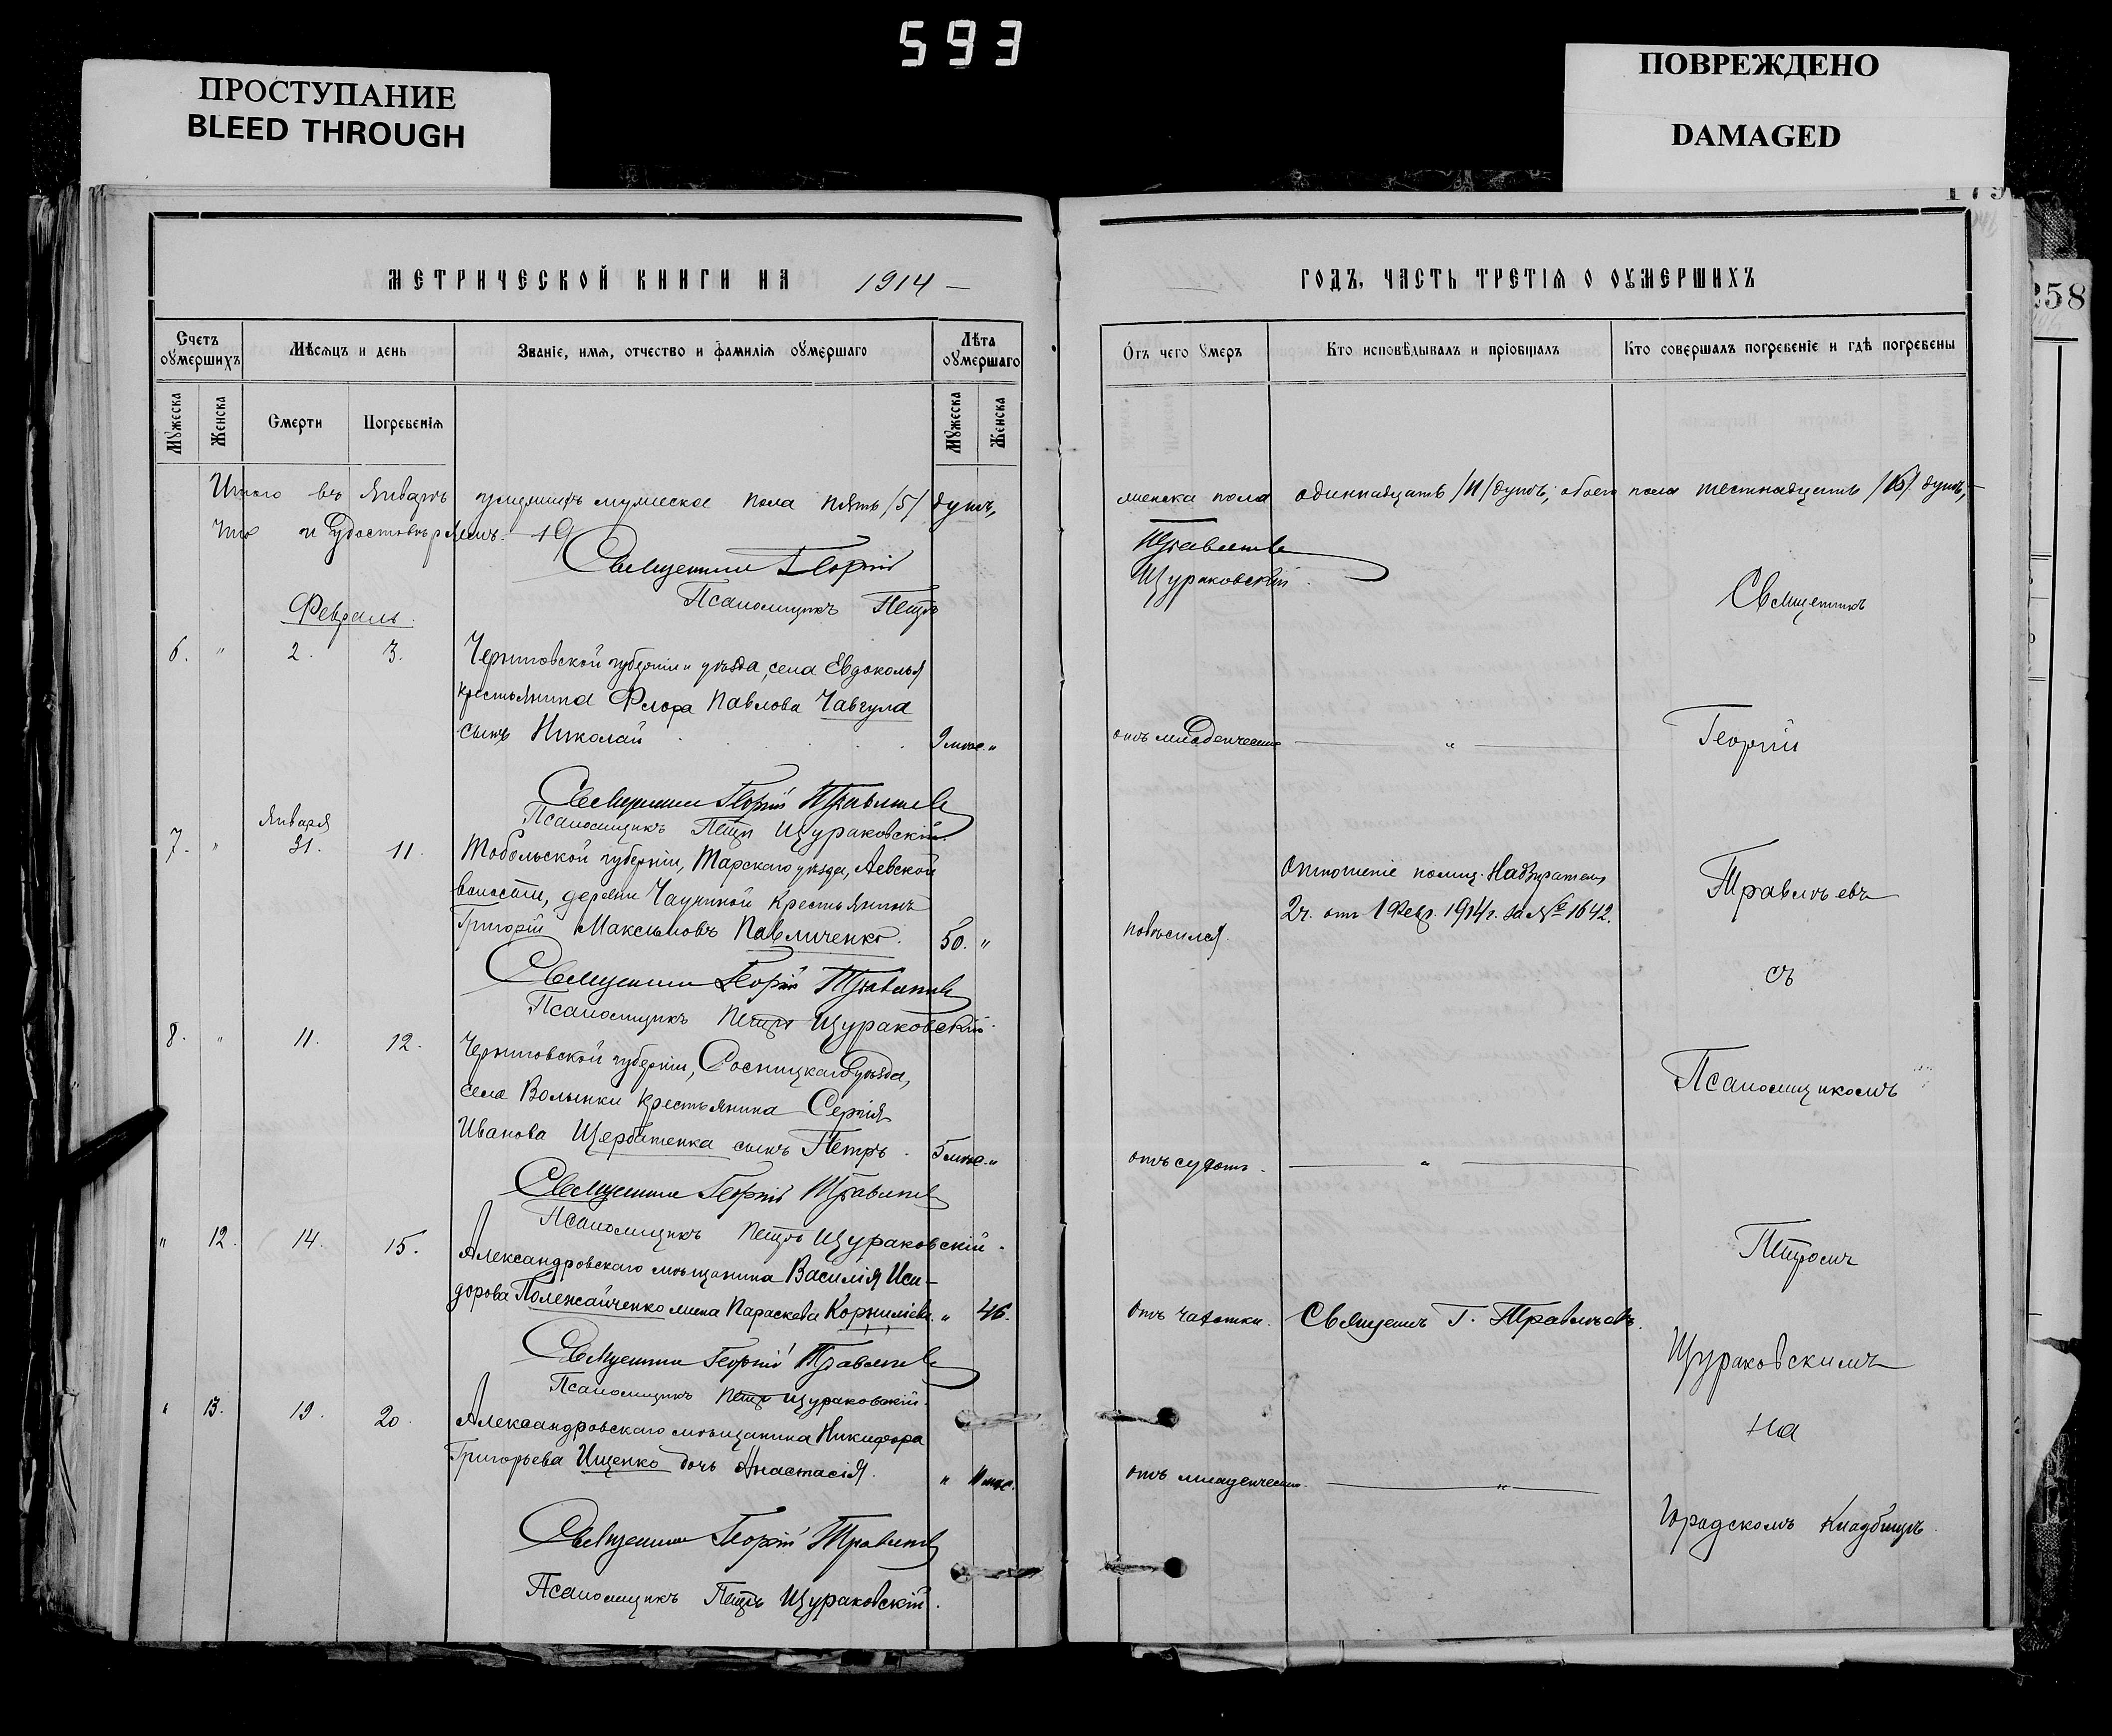 593
ПРОСТУПАНИЕ
BLEED THROUGH
ПОВРЕЖДЕНО
DAMAGED
258
МЕТРИЧЕСКОЙ КНИГИ НА 1914 —
ГОДЪ, ЧАСТЬ ТРЕТІЯ О ОУМЕРШИХЪ
Счетъ оумершихъ
Мѣсяцъ и день
Званіе, имя, отчество и фамилія оумершаго
Лѣта оумершаго
Отъ чего умеръ
Кто исповѣдывалъ и пріобщалъ
Кто совершалъ погребеніе и гдѣ погребены
Мужеска
Женска
Смерти
Погребенія
Мужеска
Женска
Итого въ Январѣ умершихъ мужеска пола пять /5/ душъ,
женска пола одиннадцать /11/ душъ; обоего пола шестнадцать /16/ душъ,
что и удостовѣряемъ.
Священникъ Георгій Травлѣевъ
Псаломщикъ Петръ Щураковскій.
Февраль.
6. " 2. 3. Черниговской губерніи и уѣзда, села Евдоколья
крестьянина Флора Павлова Чавгула
сынъ Николай 9 мѣс. " отъ младенческ. "
Священникъ Георгій Травлѣевъ
Псаломщикъ Петръ Щураковскій.
7. " Января 31. 11. Тобольской губерніи, Тарскаго уѣзда, Аевской
волости, деревни Чауниной крестьянинъ
Григорій Максимовъ Павличенко. 50. " повѣсился. Отношеніе полиц. Надзирателя
2 ч. отъ 1 Февр. 1914 г. за № 1642.
Священникъ Георгій Травлѣевъ
Псаломщикъ Петръ Щураковскій.
8. " 11. 12. Черниговской губерніи, Сосницкаго уѣзда,
села Волынки крестьянина Сергія
Иванова Щербатенка сынъ Петръ. 5 мѣс. " отъ судот. "
Священникъ Георгій Травлѣевъ
Псаломщикъ Петръ Щураковскій.
" 12. 14. 15. Александровскаго мѣщанина Василія Иси-
дорова Полежайченко жена Параскева Корниліева. " 46. отъ чахотки. Священникъ Г. Травлѣевъ.
Священникъ Георгій Травлѣевъ
Псаломщикъ Петръ Щураковскій.
" 13. 19. 20. Александровскаго мѣщанина Никифора
Григорьева Ищенко дочь Анастасія. " 11 мѣс. отъ младенческ. "
Священникъ Георгій Травлѣевъ
Псаломщикъ Петръ Щураковскій.
Священникъ
Георгій
Травлѣевъ
съ
Псаломщикомъ
Петромъ
Щураковскимъ
на
Городскомъ кладбищѣ.